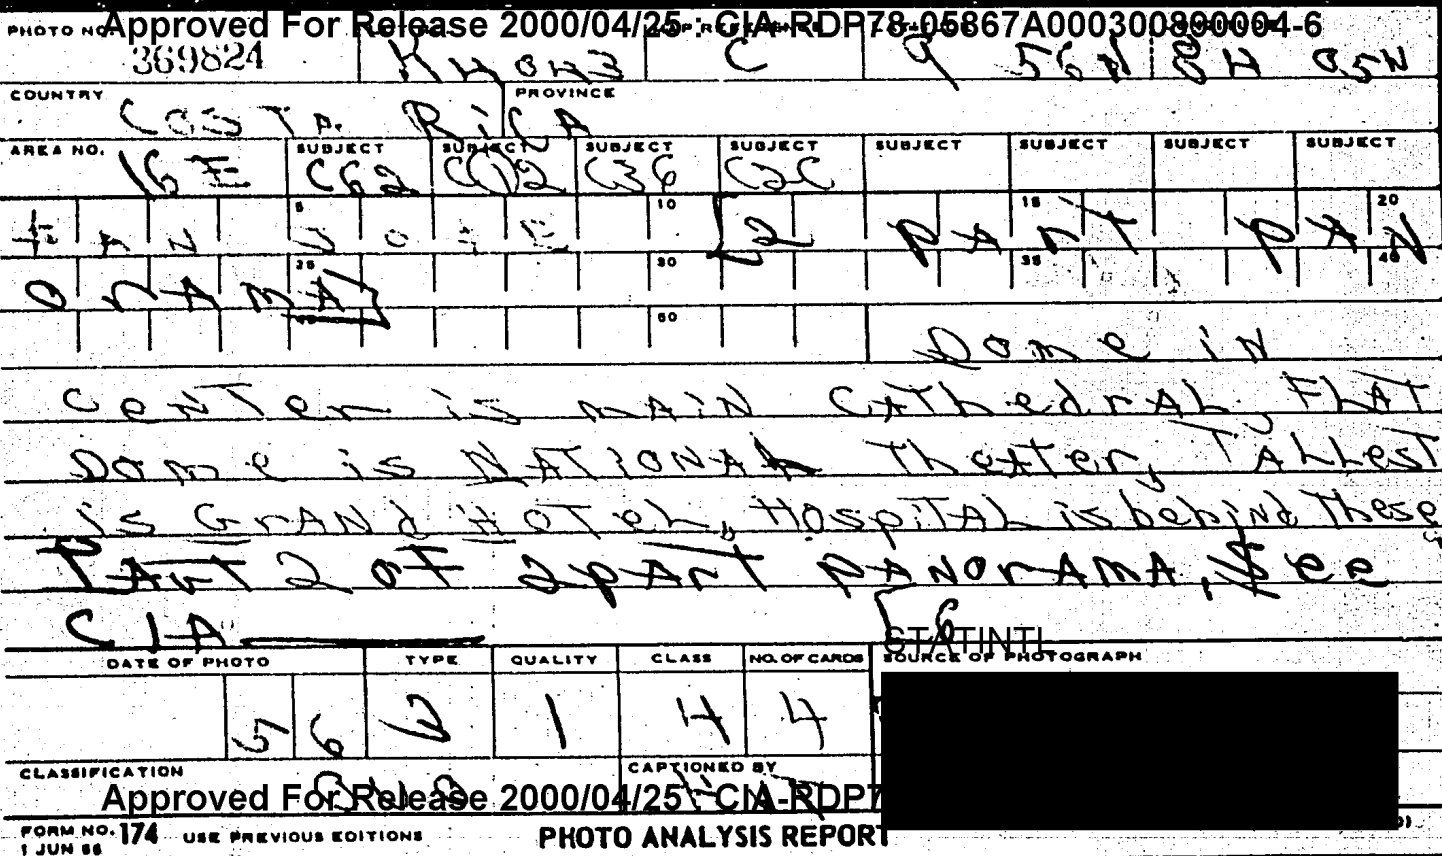 Approved For Release 2000/04/25 : CIA-RDP78-05867A000300890004-6
PHOTO NO.
369824 C 9 56N 05N
COUNTRY PROVINCE
COSTA RICA
AREA NO. SUBJECT SUBJECT SUBJECT SUBJECT SUBJECT SUBJECT SUBJECT SUBJECT
16E C62 C36 C2C
5 10 15 20
[2 PArT PAN
25 30 35 40
OrAMA]
50
Dome iN
CeNTer is MAiN CAThedrAL, FLAT
Dome is NATIONAL TheATer, TALLesT
is GrANd HoTeL, HospiTAL is behiNd These
PArT 2 oF 2 pArT pANorAMA, See
CIA
STATINTL
DATE OF PHOTO TYPE QUALITY CLASS NO. OF CARDS SOURCE OF PHOTOGRAPH
56 2 1 4 4
CLASSIFICATION CAPTIONED BY
Approved For Release 2000/04/25 : CIA-RDP7
FORM NO. 174 USE PREVIOUS EDITIONS PHOTO ANALYSIS REPORT
1 JUN